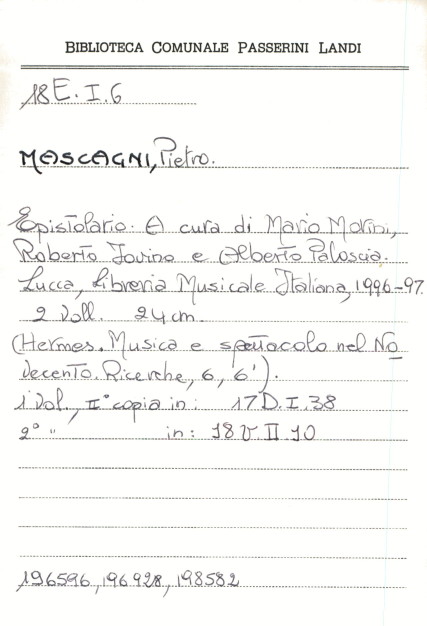 BIBLIOTECA COMUNALE PASSERINI LANDI
18E.I.6
MASCAGNI, Pietro.
Epistolario. A cura di Mario Morini,
Roberto Iovino e Alberto Paloscia.
Lucca, Libreria Musicale Italiana, 1996-97.
2 Voll. 24 cm.
(Hermes. Musica e spettacolo nel No
vecento. Ricerche, 6, 6').
1° Vol., II° copia in: 17D.I.38
2° " in: 18V.II.10
196596, 196928, 198582